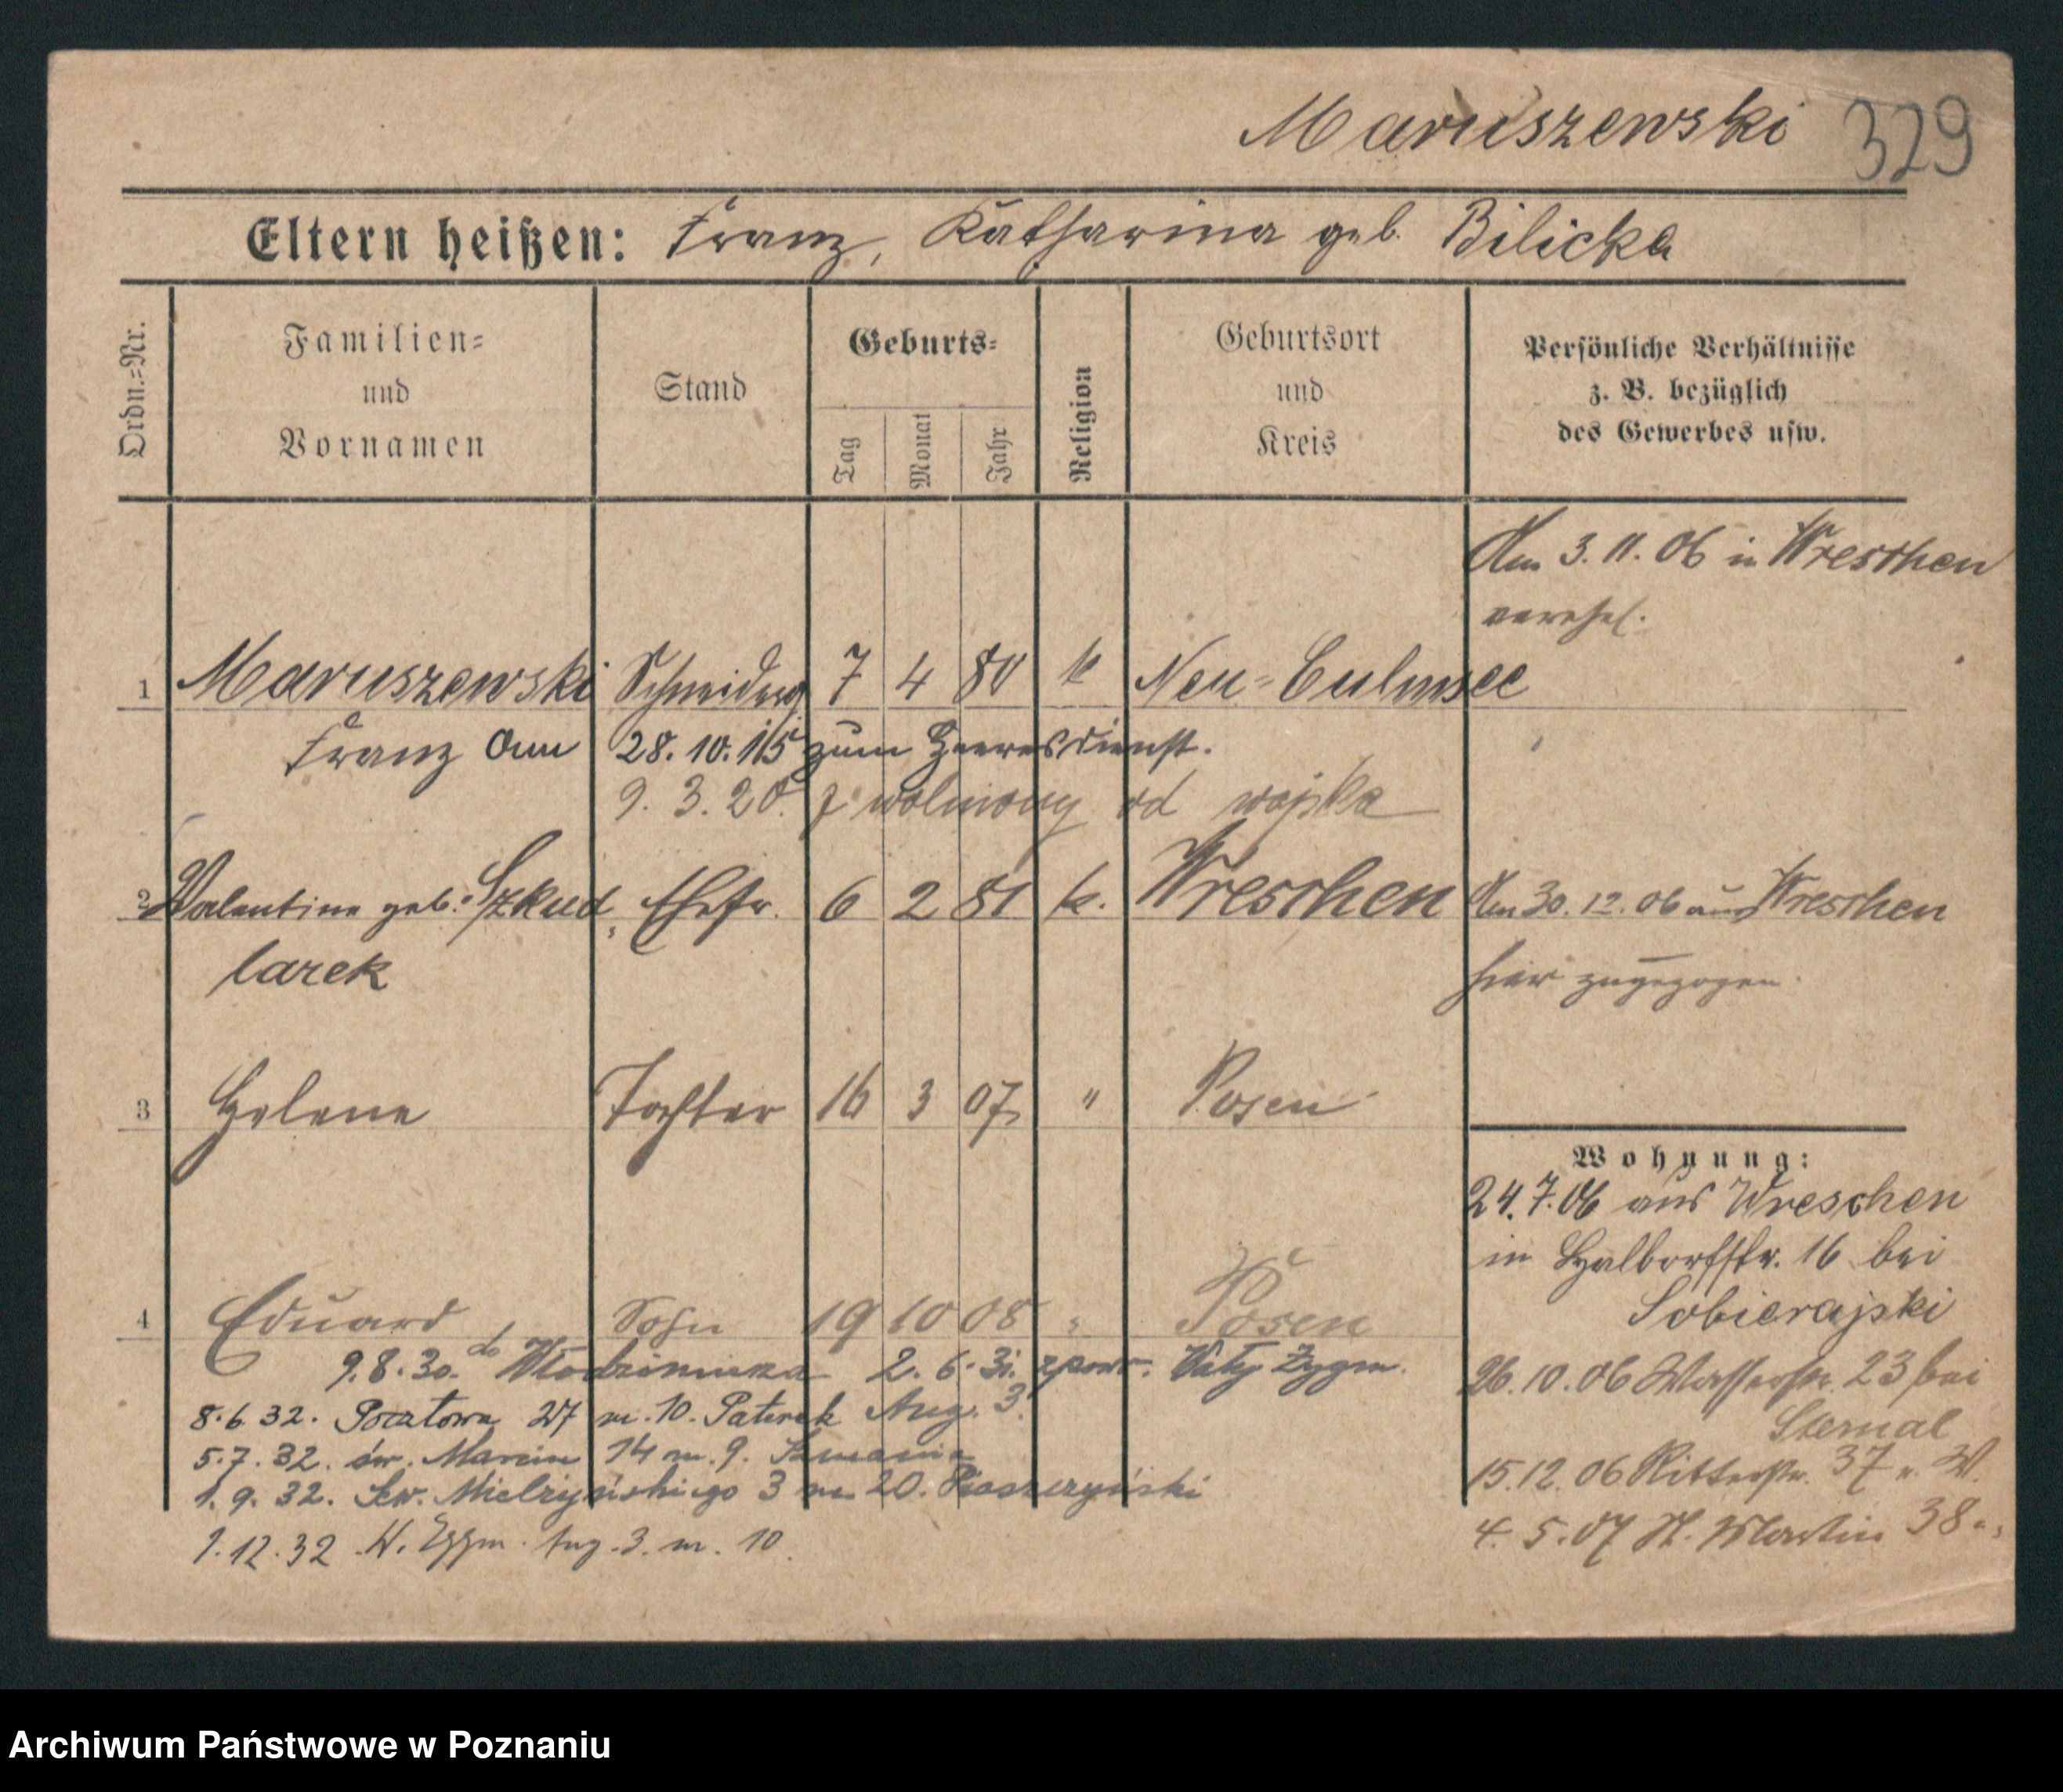 Maruszewski 329
Eltern heißen: Franz, Katharina geb. Bilicka
Ordn.-Nr.
Familien-
und
Vornamen
Stand
Geburts-
Tag
Monat
Jahr
Religion
Geburtsort
und
Kreis
Persönliche Verhältnisse
z. B. bezüglich
des Gewerbes usw.
Am 3. 11. 06 in Wreschen
verehel.
1 Maruszewski Schneiderg 7 4 80 k Neu-Culmsee
Franz 28. 10. 15 zum Heeresdienst.
9. 3. 20. zwolniony od wojska
2 Valentine geb. Szkud Ehefr. 6 2 81 k. Wreschen Am 30. 12. 06 aus Wreschen
larek
hier zugezogen.
3 Helene Tochter 16 3 07 " Posen
Wohnung:
24. 7. 06 aus Wreschen
in Halbdorfstr. 16 bei
Sobierajski
4 Eduard Sohn 19 10 08 " Posen
26. 10. 06 Wasserstr. 23 bei
Sternal
15. 12. 06 Ritterstr. 37 v. W.
4. 5. 07 St. Martin 38
9. 8. 30. do 2. 6. 31. z powr. Wały Zygm.
8. 6. 32. Pocztowa 27 m. 10. Paterek Aug. 3.
5. 7. 32. św. Marcin 14 m. 9.
1. 9. 32. Sew. Mielżyńskiego 3 m 20.
1. 12. 32 W. Zygm. Aug. 3. m. 10.
Archiwum Państwowe w Poznaniu